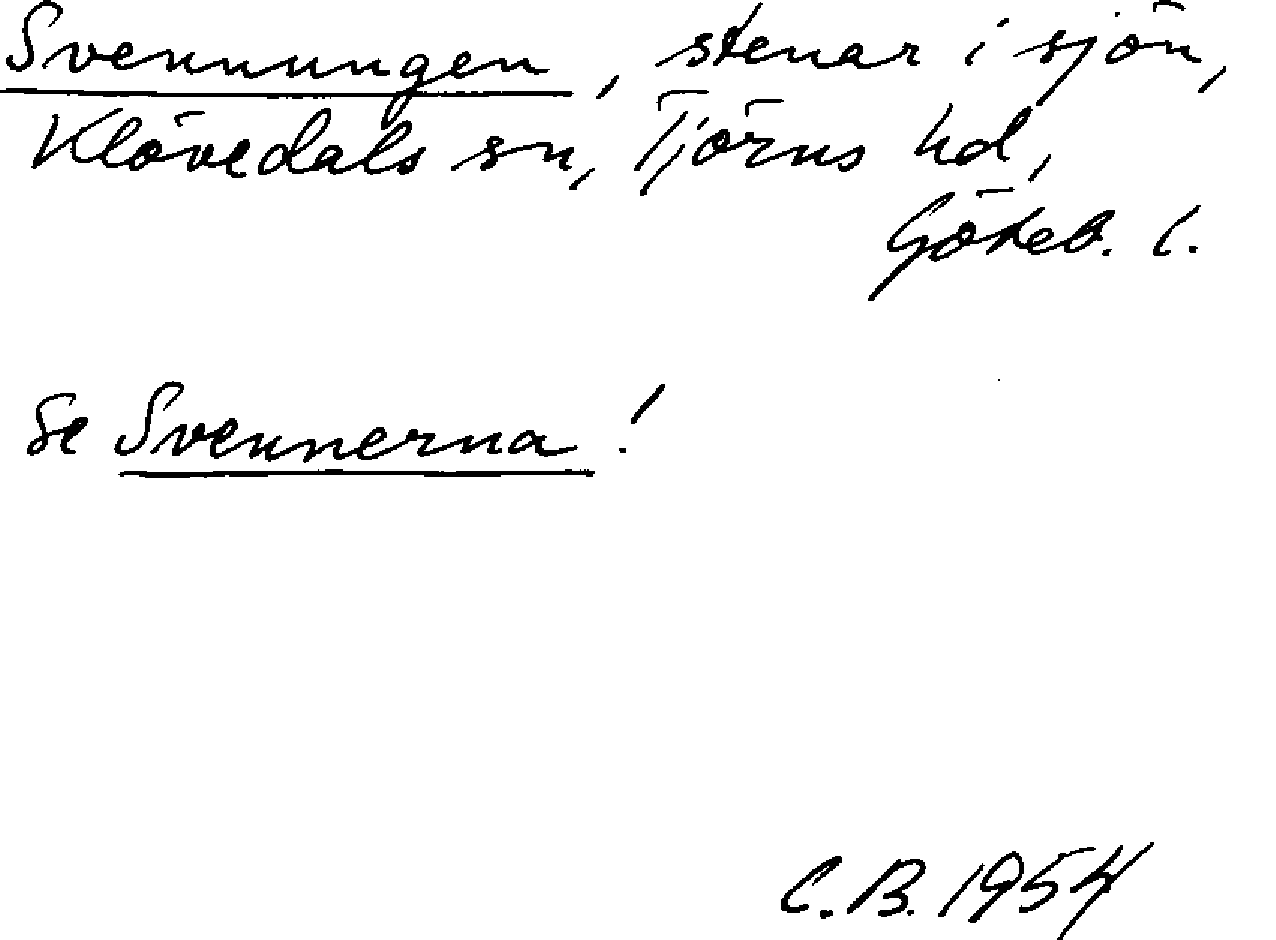 Svennungen, stenar i sjön,
Klövedals sn, Tjörns hd,
Göteb. l.
Se Svennerna!
C.B. 1954